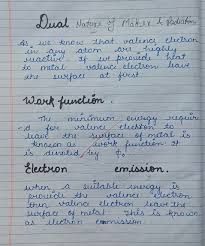 Dual Nature of Matter & Radiation
As we know that valence electron
in any atom are highly
reactive if we provide heat
to metal valence electron leave
the surface at first
Work function.
The minimum energy requir
d for valence electron to
leave the surface of metal is
known as work function it
is denoted by ϕ₀
Electron emission.
when a suitable energy is
provide the valence electron
then valence electron leave the
surface of metal this is known
as electron emission